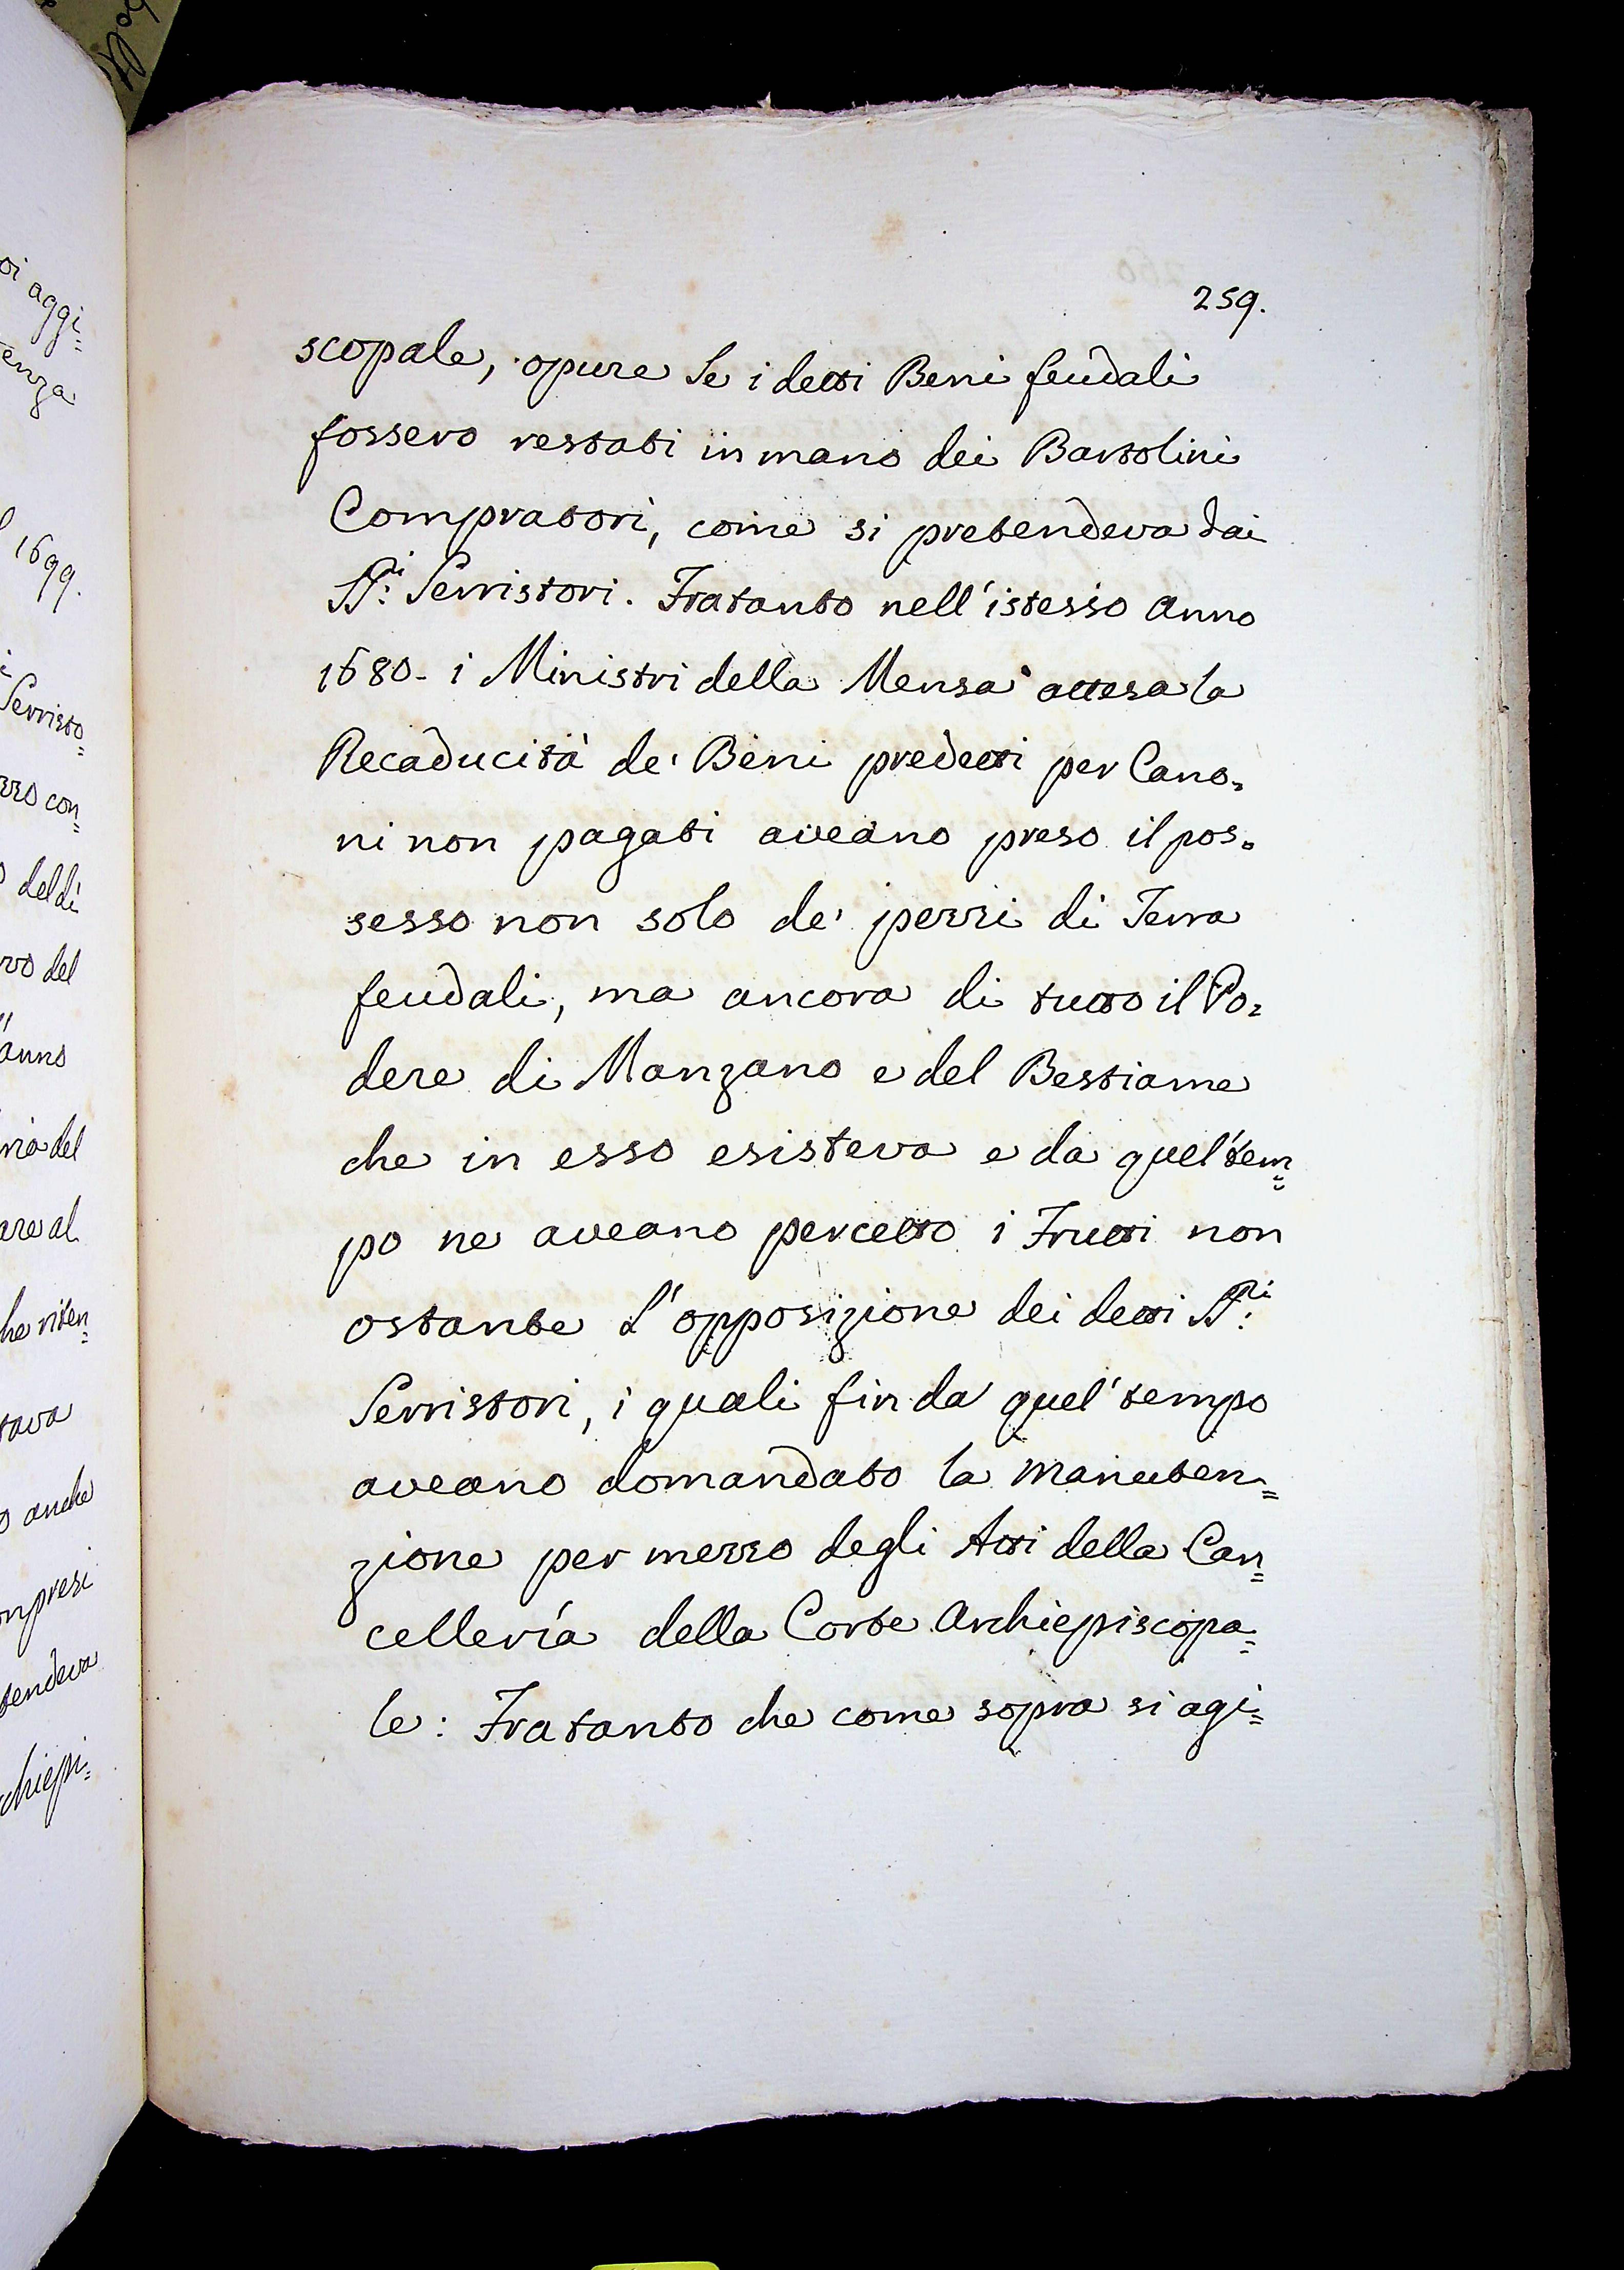 259.
scopale, opure Se i detti Beni feudali
fossero restati in mano dei Bartolini
Compratori, come si pretendeva dai
SS:ri Serristori. Fratanto nell'istesso anno
1680- i Ministri della Mensa attesa la
Recaducità de' Beni predetti per Cano=
ni non pagati aveano preso il pos=
sesso non solo de' pezzi di Terra
feudali, ma ancora di tutto il Po=
dere di Manzano e del Bestiame
che in esso esisteva e da quel'tem=
po ne aveano percetto i Frutti non
ostante L'opposizione dei detti SS:ri
Serristori, i quali fin da quel'tempo
aveano domandato la manuten=
zione per mezzo degli Atti della Can=
cellería della Corte Archiepiscopa=
le: Fratanto che come sopra si agi=
oi aggi=
tenza
1699.
Serristo=
con=
del dì
del
anno
del
al
che riten=
tava
anche
mpresi
tendeva
chiepi=